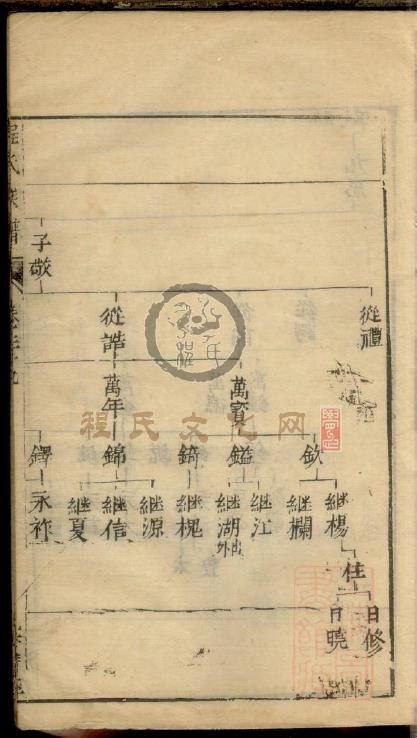 從禮
萬寶
欽
繼楊
桂
日修
日曉
繼欄
鎰
繼江
繼湖
錡
繼槐
從誥
萬年
錦
繼源
繼信
繼夏
子敬
鐸
永祚
程氏文化网